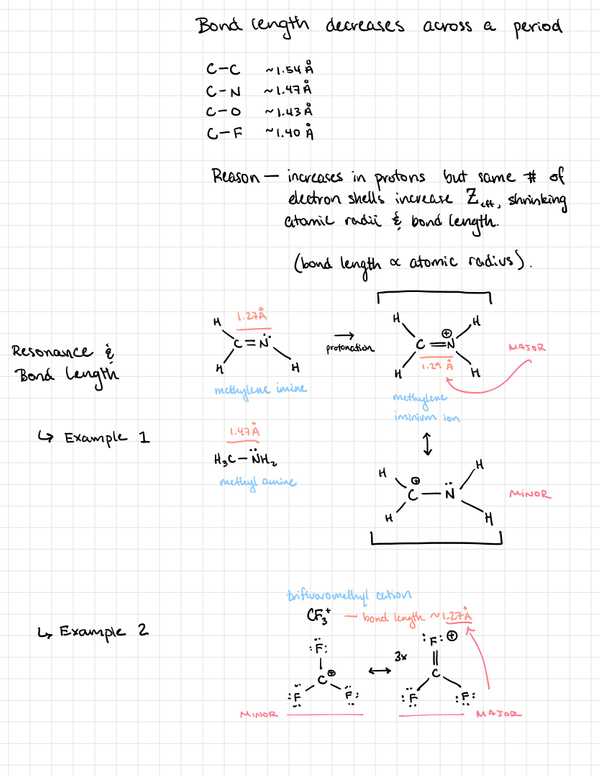 Bond length decreases across a period
C-C ~1.54Å
C-N ~1.47Å
C-O ~1.43Å
C-F ~1.40Å
Reason — increases in protons but same # of
electron shells increase Zeff, shrinking
atomic radii & bond length.
(bond length ∝ atomic radius).
Resonance &
Bond Length
↳ Example 1
H
1.27Å
C=N̈
H
H
methylene imine
→
protonation
H
H
⊕
C=N
1.29 Å
H
H
MAJOR
methylene
iminium ion
↕
1.47Å
H₃C-N̈H₂
methyl amine
H
⊕
C-N̈
H
H
H
MINOR
↳ Example 2
trifluoromethyl cation
CF₃⁺ — bond length ~1.27Å
:F̈:
C⊕
:F̈
F̈:
MINOR
↔
3x
:F: ⊕
C
:F̈
F̈:
MAJOR